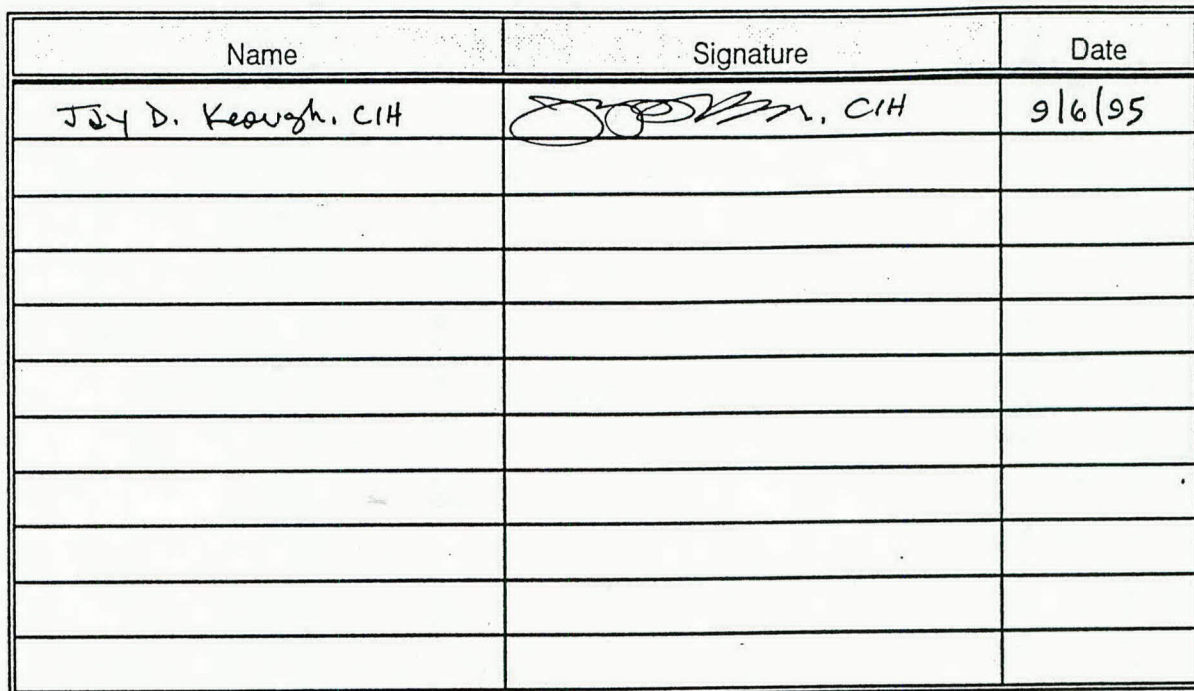 Name Signature Date
Jay D. Keough, CIH , CIH 9/6/95